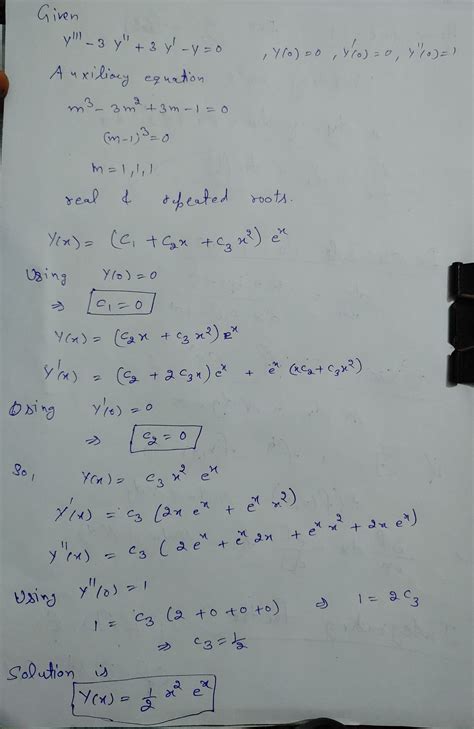 Given
y''' - 3 y'' + 3 y' - y = 0 , y(0) = 0 , y'(0) = 0, y''(0) = 1
Auxiliary equation
m³ - 3m² + 3m - 1 = 0
(m-1)³ = 0
m = 1, 1, 1
real & repeated roots.
y(x) = (C₁ + C₂x + C₃x²) eˣ
Using y(0) = 0
⇒ C₁ = 0
y(x) = (C₂x + C₃x²) eˣ
y'(x) = (C₂ + 2C₃x) eˣ + eˣ (xC₂ + C₃x²)
Using y'(0) = 0
⇒ C₂ = 0
So, y(x) = C₃ x² eˣ
y'(x) = C₃ (2x eˣ + eˣ x²)
y''(x) = C₃ (2eˣ + eˣ 2x + eˣ x² + 2x eˣ)
Using y''(0) = 1
1 = C₃ (2 + 0 + 0 + 0) ⇒ 1 = 2C₃
⇒ C₃ = 1/2
Solution is
y(x) = 1/2 x² eˣ